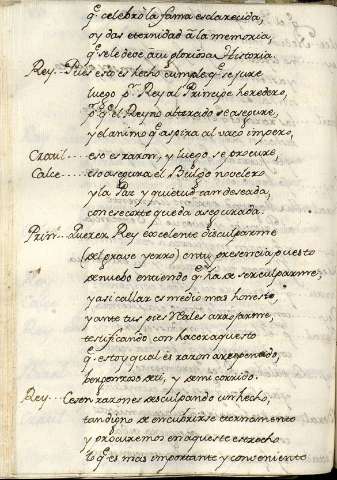 q̃ celebrò la fama esclarecida,
oy das eternidad à la memoria,
q̃ se le deve à tu gloriosa Historia.
Rey. Pues esto es hecho cumple q̃ se jure
luego pr Rey al Principe heredero,
pr q̃ el Reyno alterado se asegure,
y el animo q̃ aspira al vaco impero,
Cravil.... eso es razon, y luego se procure,
Calce.... eso asegura el Bulgo novelero
y la Paz y quietud tan deseada,
con ese corte queda asegurada.
Prin.. Querer Rey excelente disculparme
del grave yerro) en tu presencia puesto
de nuebo entiendo q̃ ha de ser culparme,
y asi callar es medio mas honesto
y ante tus pies Reales arrojarme,
testificando con hacer aquesto
q̃ estoy qual es razon arrepentido,
bergonzoso de ti, y de mi corrido.
Rey... Cesen razones desculpando un hecho,
tan digno de encubrirse eternamente
y procuremos en aqueste estrecho
lo q̃ es mas importante y conveniente